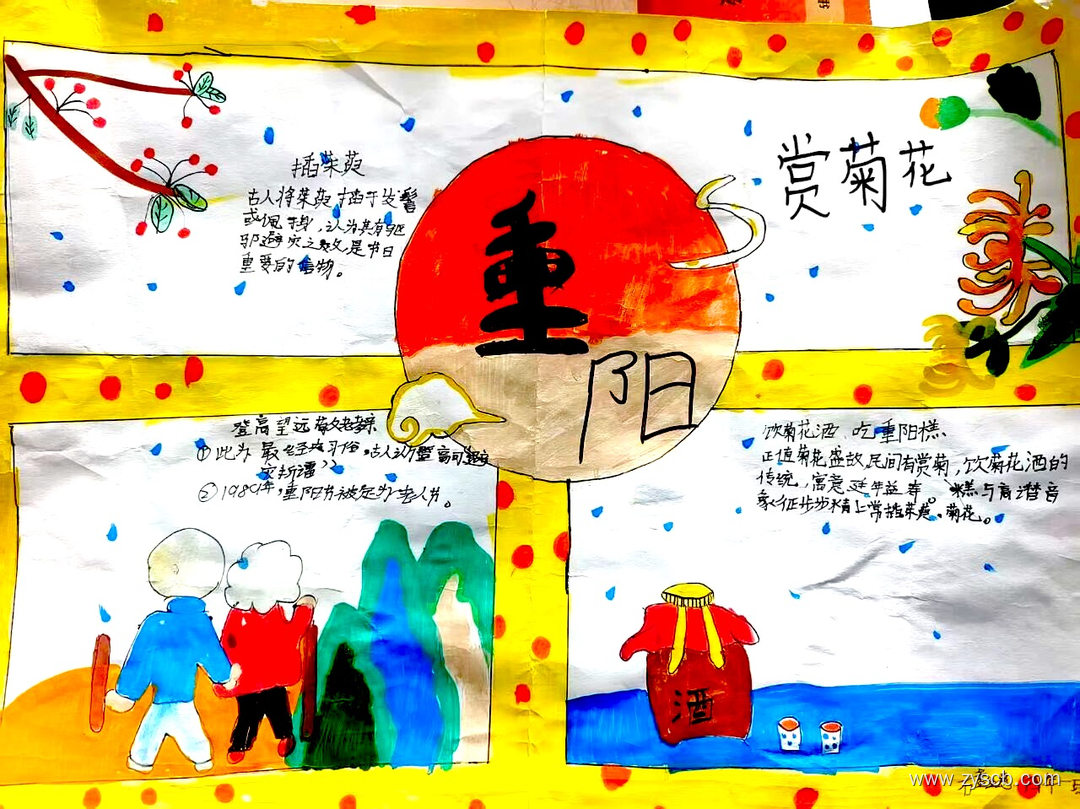 插茱萸
古人将茱萸插于发髻
或佩于身，认为其有驱
邪避灾之效，是节日
重要的信物。
重
阳
赏菊花
登高望远
①此为最经典习俗，古人认为登高可避
灾祈福
②1989年，重阳节被定为老人节。
饮菊花酒、吃重阳糕
正值菊花盛放，民间有赏菊，饮菊花酒的
传统，寓意延年益寿。糕与高谐音
象征步步 上常插茱萸、菊花。
酒
www.zyscb.com